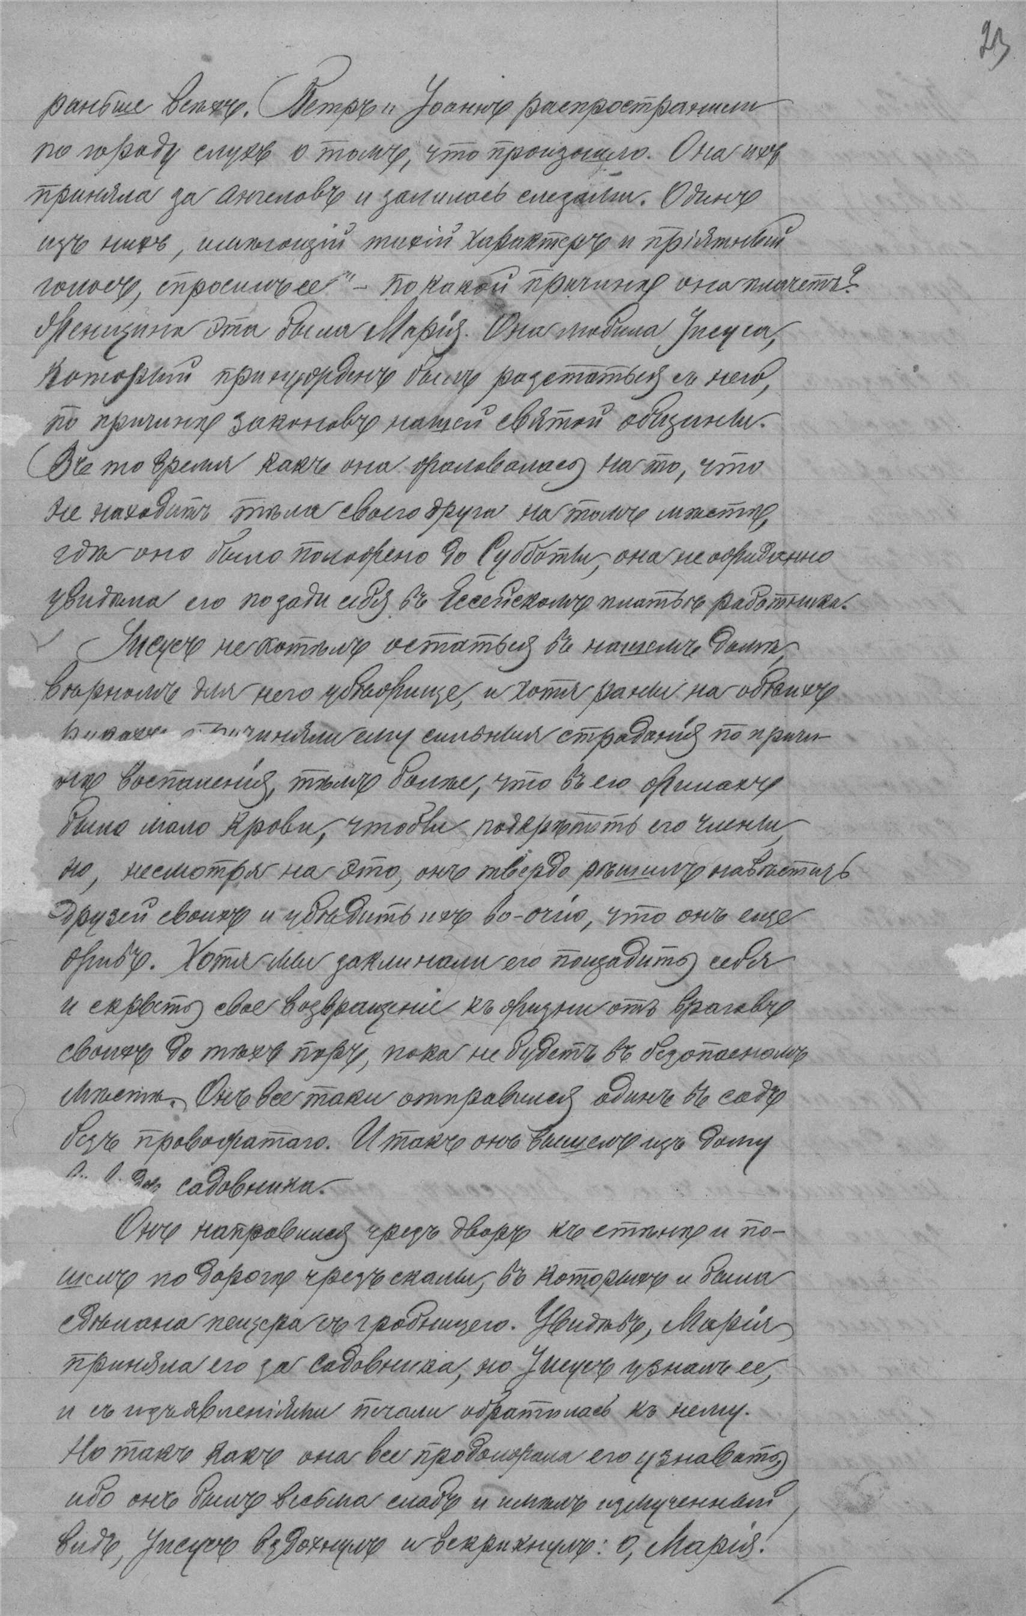 23
раньше всѣхъ. Петръ и Іоаннъ распространили
по городу слухъ о томъ, что произошло. Она ихъ
приняла за ангеловъ и залилась слезами. Одинъ
изъ нихъ, имѣющій тихій характеръ и пріятный
голосъ, спросилъ ее" – по какой причинѣ она плачетъ?
Женщина эта была Марія. Она любила Іисуса,
который принужденъ былъ разстаться съ нею,
по причинѣ законовъ нашей святой общины.
Въ то время какъ она жаловалась на то, что
не находитъ тѣла своего друга на томъ мѣстѣ,
гдѣ оно было положено до Субботы, она неожиданно
увидѣла его позади себя въ Ессейскомъ платьѣ работника.
Іисусъ не хотѣлъ остаться въ нашемъ домѣ,
вѣрномъ для него убѣжище, и хотя раны на обѣихъ
рукахъ причиняли ему сильныя страданія по причи-
нѣ воспаленія, тѣмъ болѣе, что въ его жилахъ
было мало крови, чтобы подкрѣпить его члены,
но, несмотря на это, онъ твердо рѣшилъ навѣстить
друзей своихъ и убѣдить ихъ во-очію, что онъ еще
живъ. Хотя мы заклинали его пощадить себя
и скрыть свое возвращеніе къ жизни отъ враговъ
своихъ до тѣхъ поръ, пока не будетъ въ безопасномъ
мѣстѣ. Онъ все таки отправился одинъ въ садъ
безъ провожатаго. И такъ онъ вышелъ изъ дому
садовника.
Онъ направился чрезъ дворъ къ стѣнѣ и по-
шелъ по дорогѣ чрезъ скалы, въ которыхъ и была
сдѣлана пещера съ гробницею. Увидѣвъ, Марія
приняла его за садовника, но Іисусъ узналъ ее,
и съ изъявленіями печали обратилась къ нему.
Но такъ какъ она все продолжала его узнавать,
ибо онъ былъ весьма слабъ и имѣлъ измученный
видъ, Іисусъ вздохнулъ и вскрикнулъ: О, Марія!